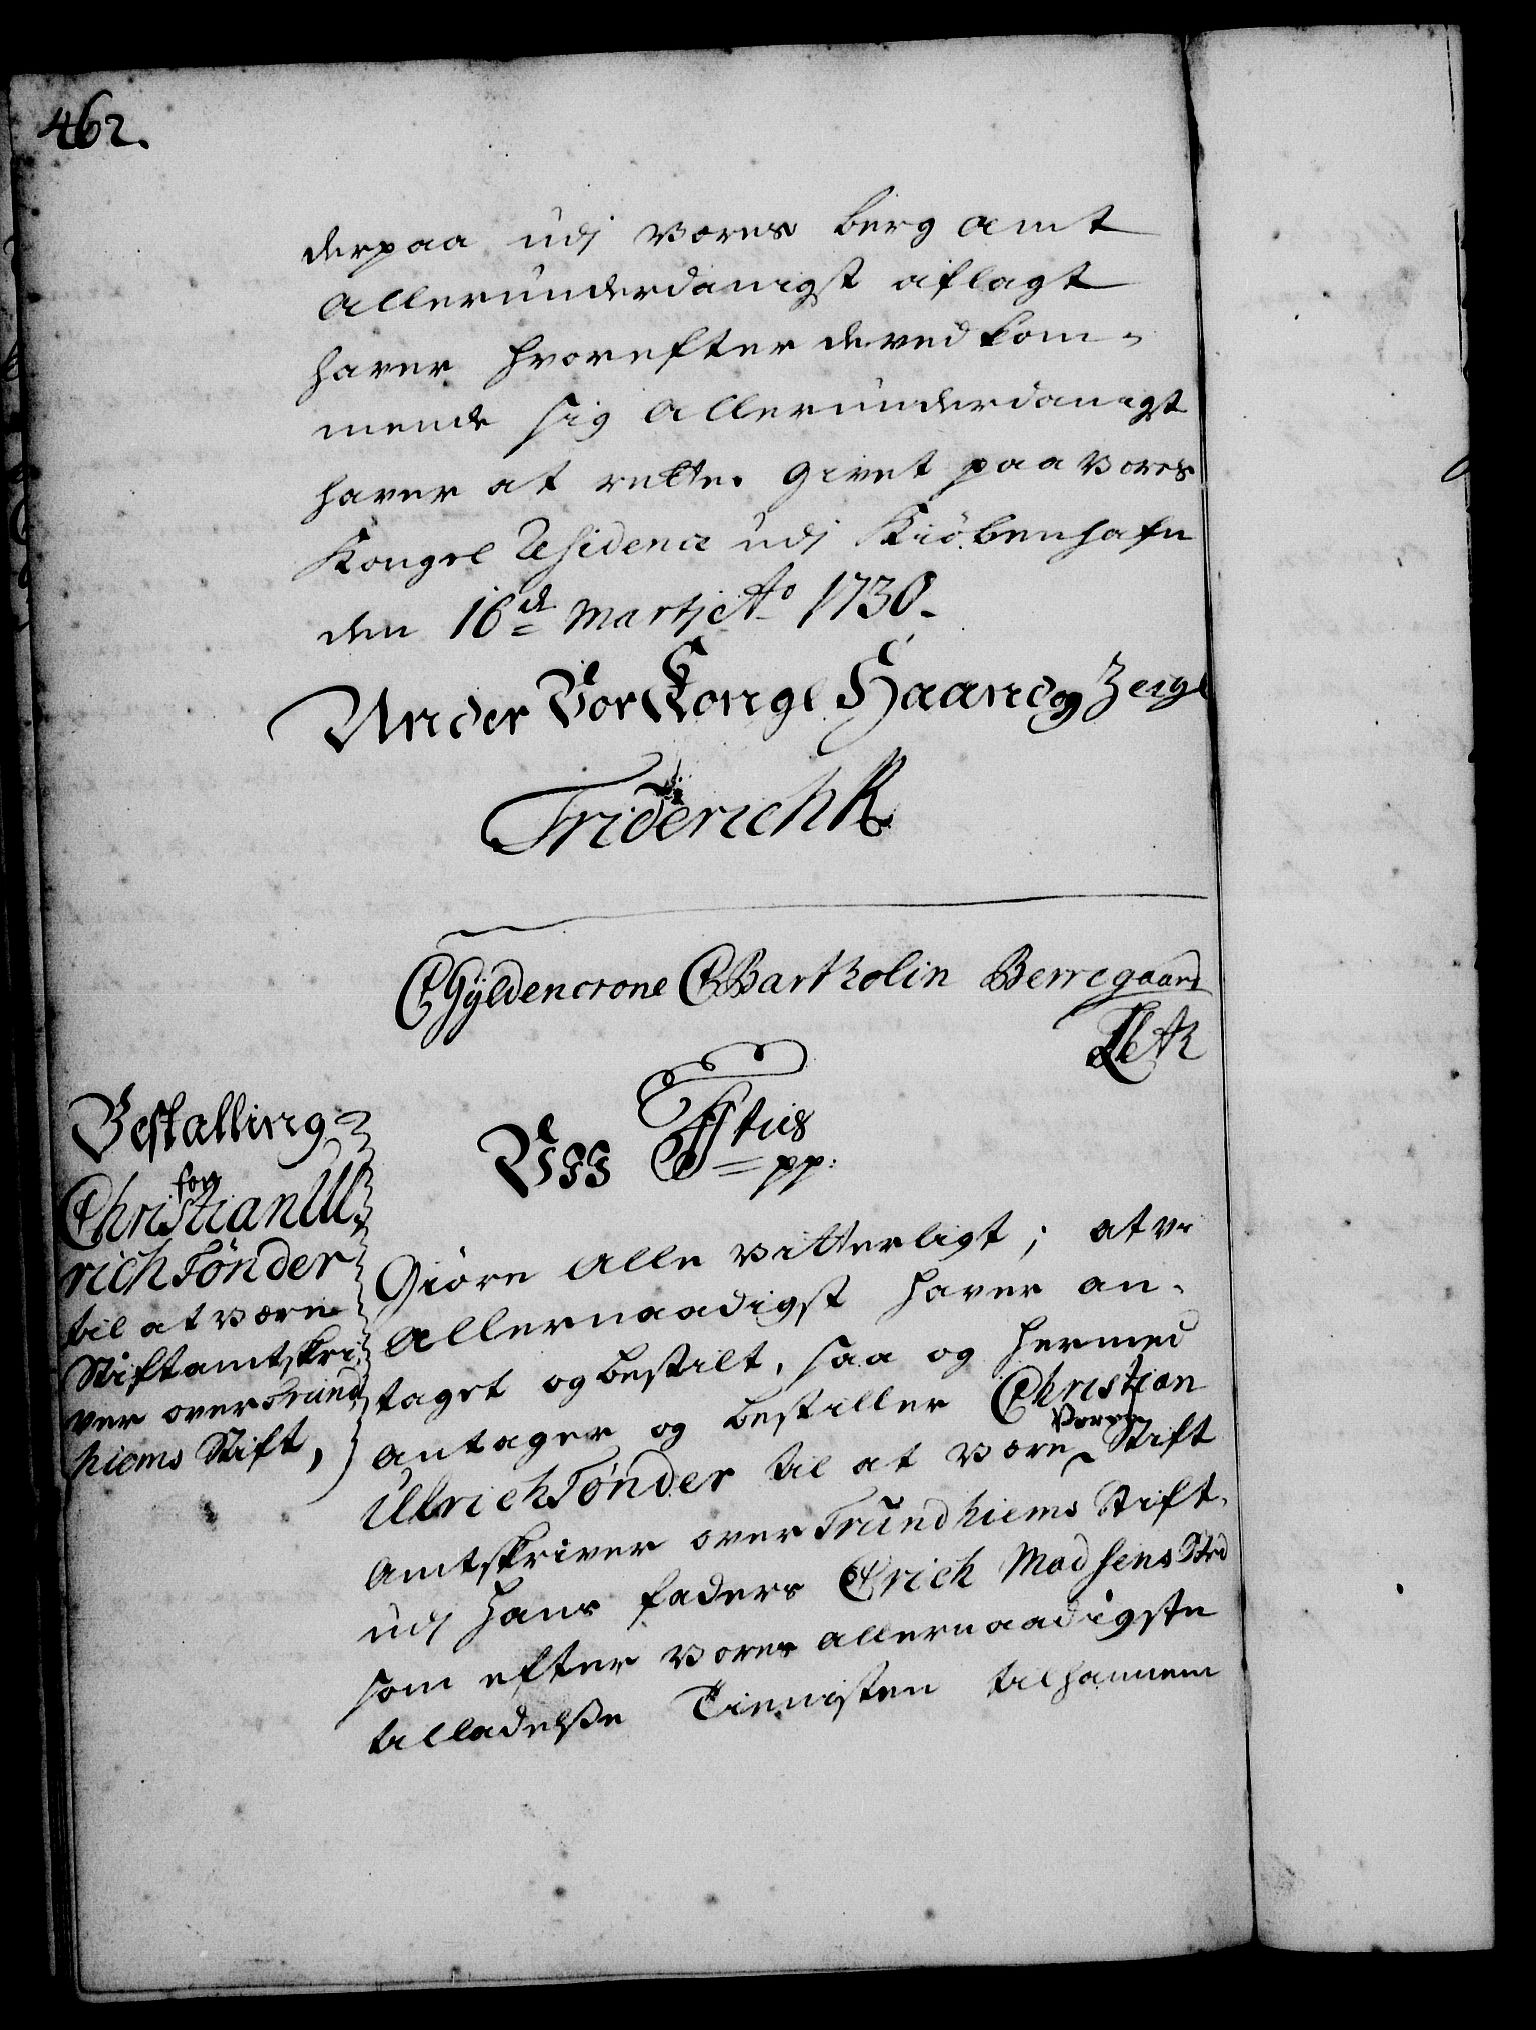 462.
derpaa udj Vores Berg Amt
Allerunderdanigst aflagt
haver hvorefter de ved kom-
mende sig Allerunderdanigst
haver at rette. Givet paa Vores
Kongel Residence udj Kiöbenhafn
den 16de Martj Ao 1730.
Under Vor Kongl Haand og Zeigl
Friderich R
CGyldencrone CBartholin Berregaard
Bestalling
for
Christian Ul-
rich Tönder
til at være
Stiftamtskri-
ver over Trund
hiems Stift,
Giöre Alle Vitterligt; at Vi
Allernaadigst haver an-
taget og bestilt, saa og hermed
antager og bestiller Christian
Ulrich Tönder til at være Vores Stift
Amtskriver over Trundhiems Stift,
udj Hans faders Erich Madsens Sted
som efter Vores allernaadigste
tilladelse Tienisten til hannem